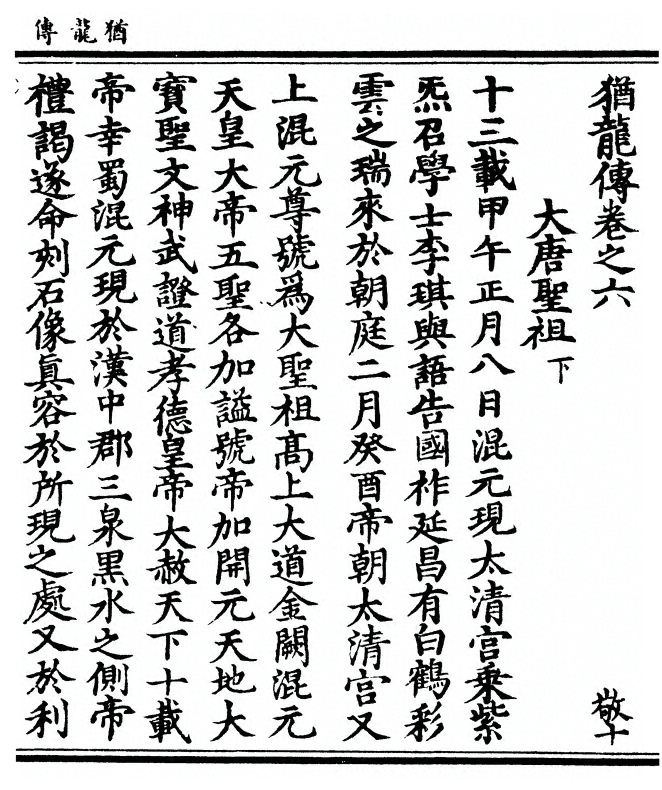 猶龍傳
猶龍傳卷之六
敬十
大唐聖祖下
十三載甲午正月八日混元現太清宮乗紫
炁召學士李琪與語告國祚延昌有白鶴彩
雲之瑞來於朝庭二月癸酉帝朝太清宮又
上混元尊號爲大聖祖髙上大道金闕混元
天皇大帝五聖各加謚號帝加開元天地大
寳聖文神武證道孝德皇帝大赦天下十載
帝幸蜀混元現於漢中郡三泉黒水之側帝
禮謁遂命刻石像真容於所現之處又於利